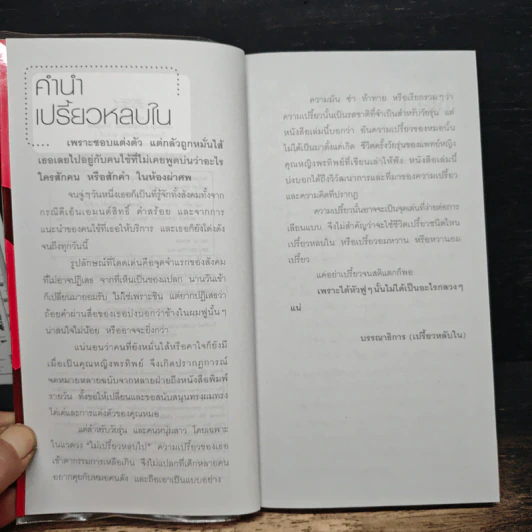 คำนำ
เปรี้ยวหลบใน
เพราะชอบแต่งตัว แต่กลัวถูกหมั่นไส้
เธอเลยไปอยู่กับคนไข้ที่ไม่เคยพูดบ่นว่าอะไร
ใครสักคน หรือสักคำ ในห้องผ่าศพ
จนจู่ๆวันหนึ่งเธอก็เป็นที่รู้จักทั้งสังคมทั้งจาก
กรณีดีเอ็นเอมนต์สิทธิ์ คำสร้อย และจากการ
แนะนำของคนใช้ที่เธอให้บริการ และเธอก็ยังโด่งดัง
จนถึงทุกวันนี้
รูปลักษณ์ที่โดดเด่นคือจุดจำแรกของสังคม
ที่ไม่อาจปฏิเสธ จากที่เห็นเป็นของแปลก นานวันเข้า
ก็เปลี่ยนมายอมรับ ไม่ใช่เพราะชิน แต่ยากปฏิเสธว่า
ถ้อยคำผ่านสื่อของเธอบ่งบอกว่าข้างในผมฟูนั้นๆ
น่าสนใจไม่น้อย หรืออาจจะยิ่งกว่า
แน่นอนว่าคนที่ยังหมั่นไส้หรือคาใจก็ยังมี
เมื่อเป็นคุณหญิงพรทิพย์ จึงเกิดปรากฏการณ์
จดหมายหลายฉบับจากหลายฝ่ายถึงหนังสือพิมพ์
รายวัน ทั้งขอให้เปลี่ยนและขอสนับสนุนทรงผมทรง
โด่เด่และการแต่งตัวของคุณหมอ
แต่สำหรับวัยรุ่น และคนหนุ่มสาว โดยเฉพาะ
ในแวดวง “ไม่เปรี้ยวหลบไป” ความเปรี้ยวของเธอ
เข้าตากรรมการเหลือเกิน จึงไม่แปลกที่เด็กหลายคน
อยากคุยกับหมอคนดัง และถือเอาเป็นแบบอย่าง
ความมัน ซ่า ท้าทาย หรือเรียกรวมๆว่า
ความเปรี้ยวนั้นเป็นรสชาติที่จำเป็นสำหรับวัยรุ่น แต่
หนังสือเล่มนี้บอกว่า อันความเปรี้ยวของหมอนั้น
ไม่ได้เป็นมาตั้งแต่เกิด ชีวิตครั้งวัยรุ่นของแพทย์หญิง
คุณหญิงพรทิพย์ที่เขียนเล่าให้ฟัง หนังสือเล่มนี้
บ่งบอกได้ถึงวิวัฒนาการและที่มาของความเปรี้ยว
และความคิดที่ปรากฏ
ความเปรี้ยวนั้นอาจจะเป็นจุดเด่นที่ง่ายต่อการ
เลียนแบบ จึงไม่สำคัญว่าจะใช้ชีวิตเปรี้ยวชนิดไหน
เปรี้ยวหลบใน หรือเปรี้ยวอมหวาน หรือหวานอม
เปรี้ยว
แค่อย่าเปรี้ยวจนสติแตกก็พอ
เพราะใต้หัวฟูๆนั้นไม่ได้เป็นอะไรกลวงๆ
แน่
บรรณาธิการ (เปรี้ยวหลบใน)